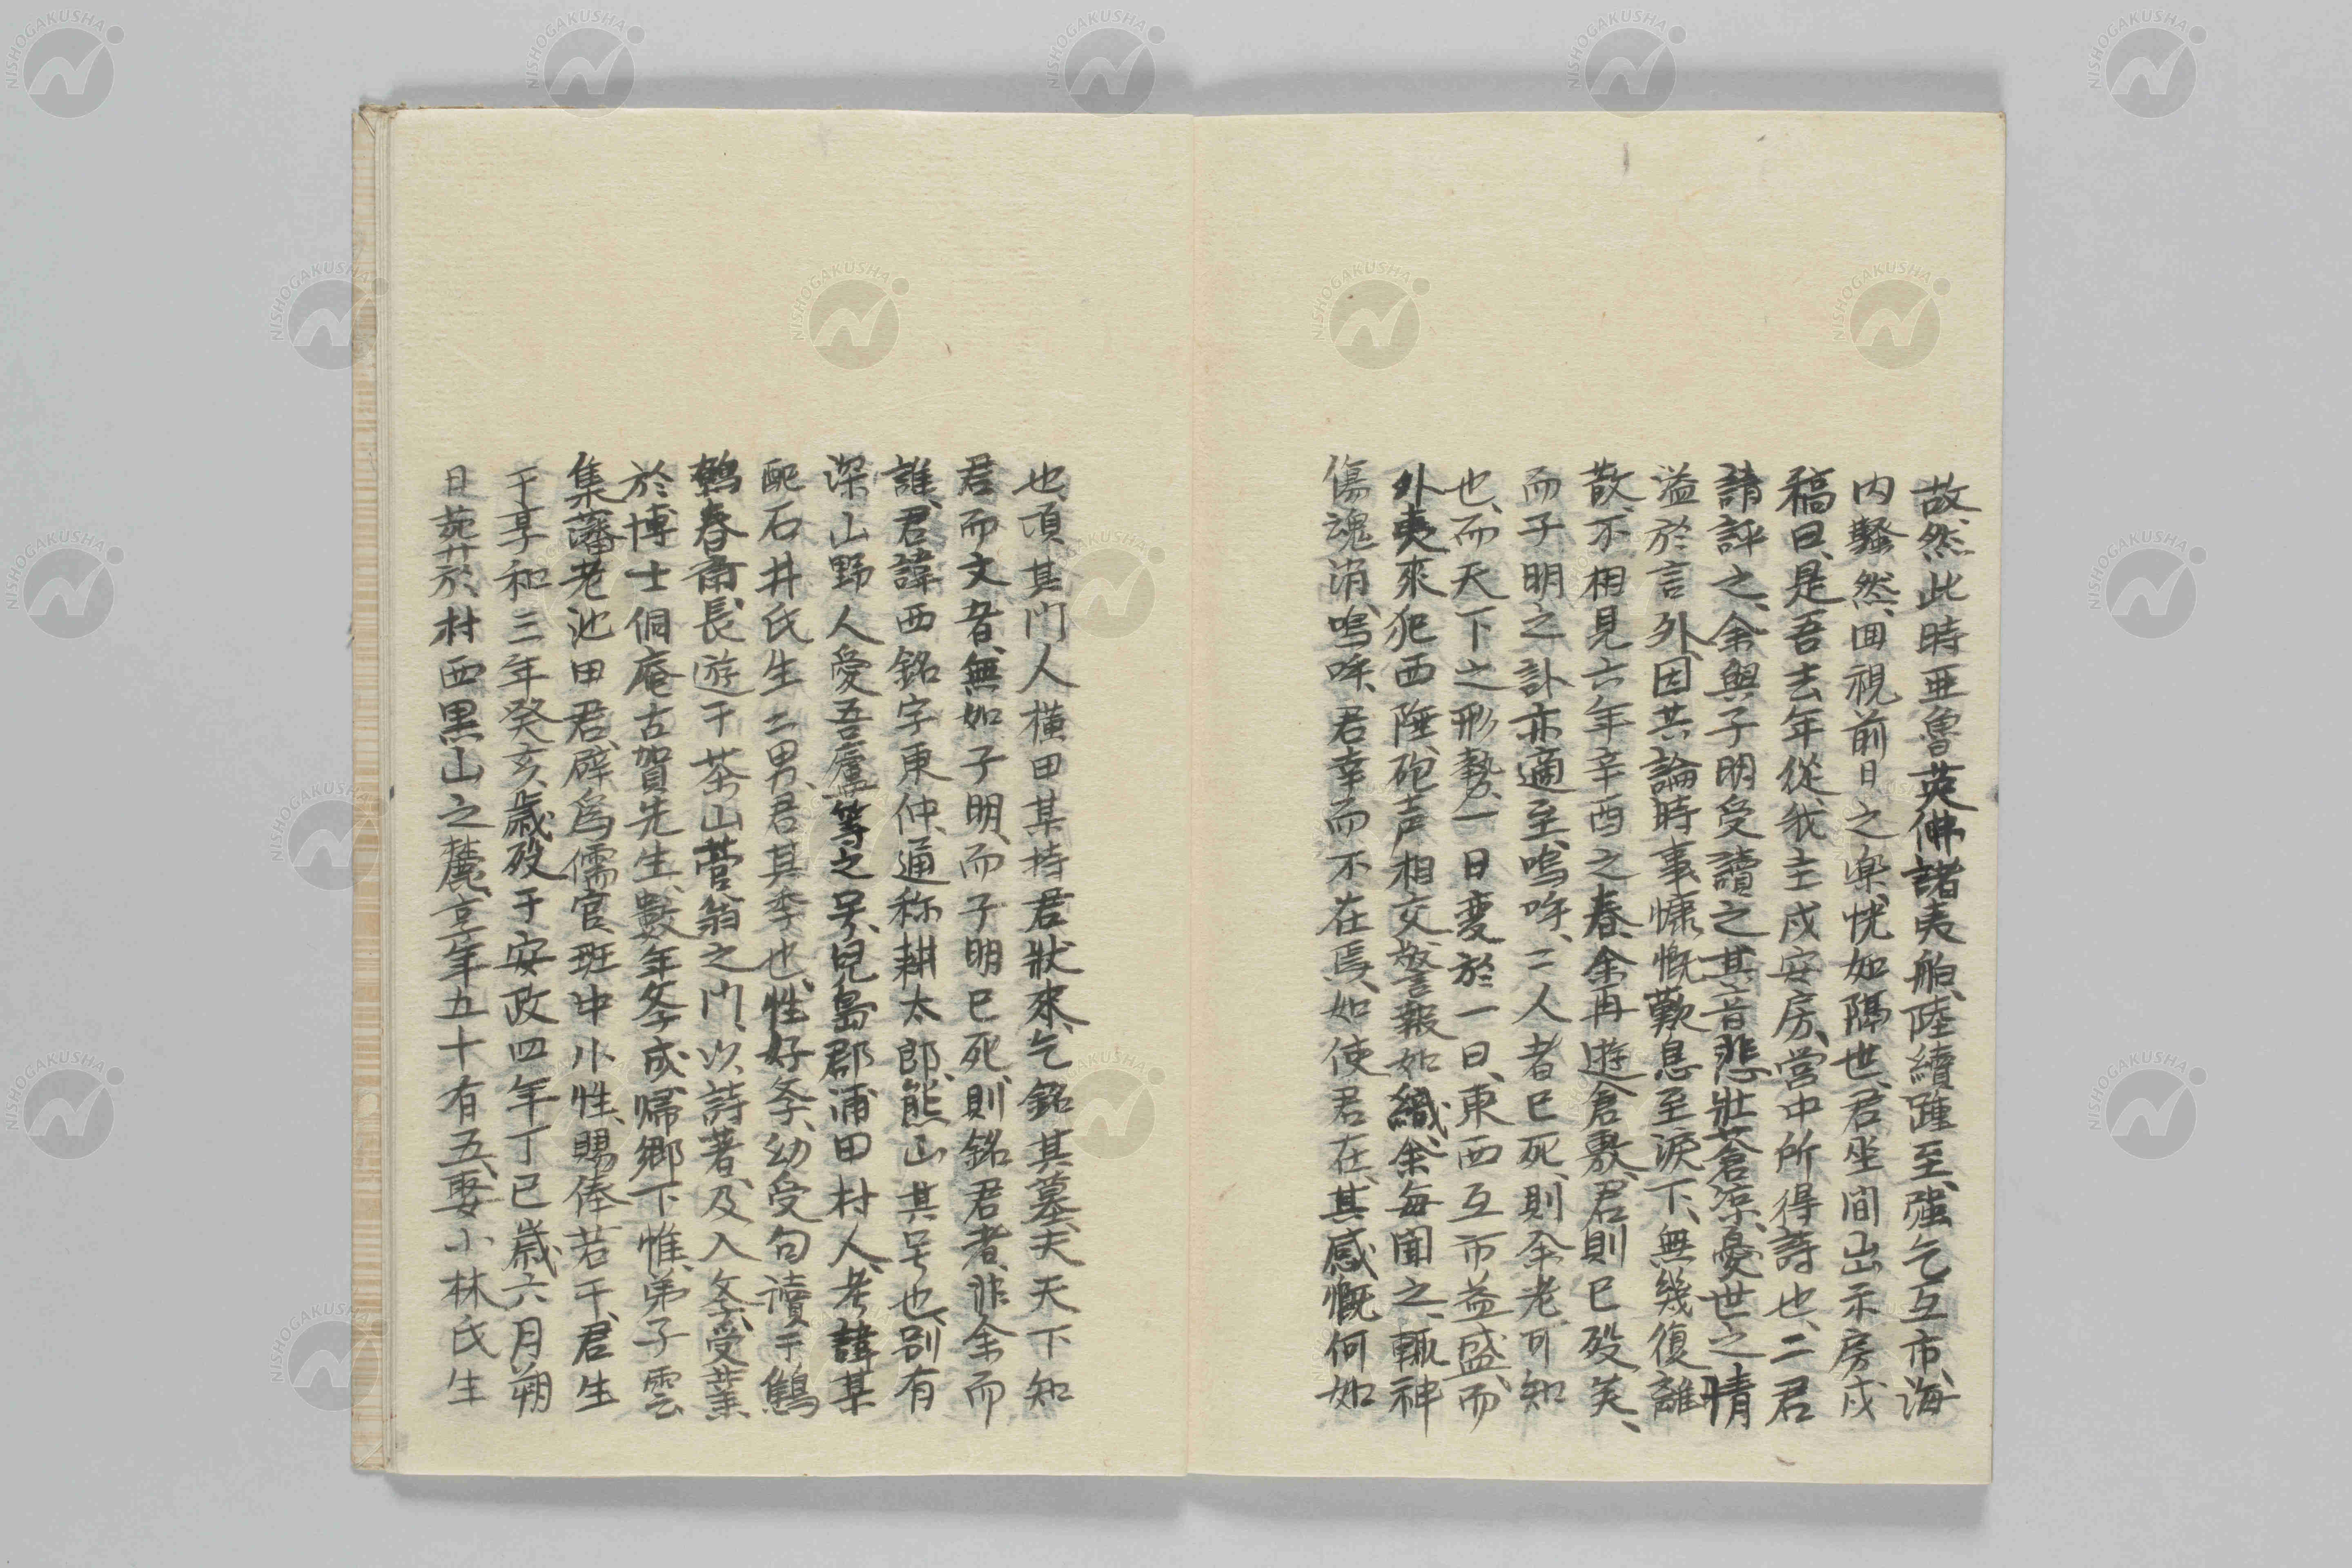 故、然此時亜魯英佛諸夷舶、陸續踵至、強乞互市、海
内騒然、回視前日之楽、恍如隔世、君坐間出示房戍
稿曰、是吾去年從我主戍安房、営中所得詩也、二君
請評之、余與子明受讀之、其音悲壮蒼凉、憂世之情
溢於言外、因共論時事慷慨歎息至涙下、無幾復離
散、不相見六年、辛酉之春、余再遊倉敷、君則已歿矣、
而子明之訃亦適至、嗚呼、二人者已死、則余老可知
也、而天下之形勢、一日変於一日、東西互市益盛、而
外夷來犯西陲、砲声相交、警報如織、余毎聞之、輒神
傷魂消、嗚呼、君幸而不在焉、如使君在、其感慨何如
也、頃其門人横田某持君狀來、乞銘其墓、夫天下知
君而文者、無如子明、而子明已死、則銘君者、非余而
誰、君諱西銘字東仲、通称耕太郎、熊山其号也、別有
深山野人愛吾廬等之号、児島郡浦田村人、考諱某
配石井氏生二男、君其季也、性好斈、幼受句讀于鷦
鷯春斎、長遊于茶山菅翁之門、以詩著、及入斈受業
於博士侗庵古賀先生、數年斈成帰郷下惟、弟子雲
集、藩老池田君、辟為儒官、班中小性、賜俸若干、君生
于享和三年癸亥、歳歿于安政四年丁巳歳六月朔
日、葬於村西黒山之麓、享年五十有五、娶小林氏生
NISHOGAKUSHA